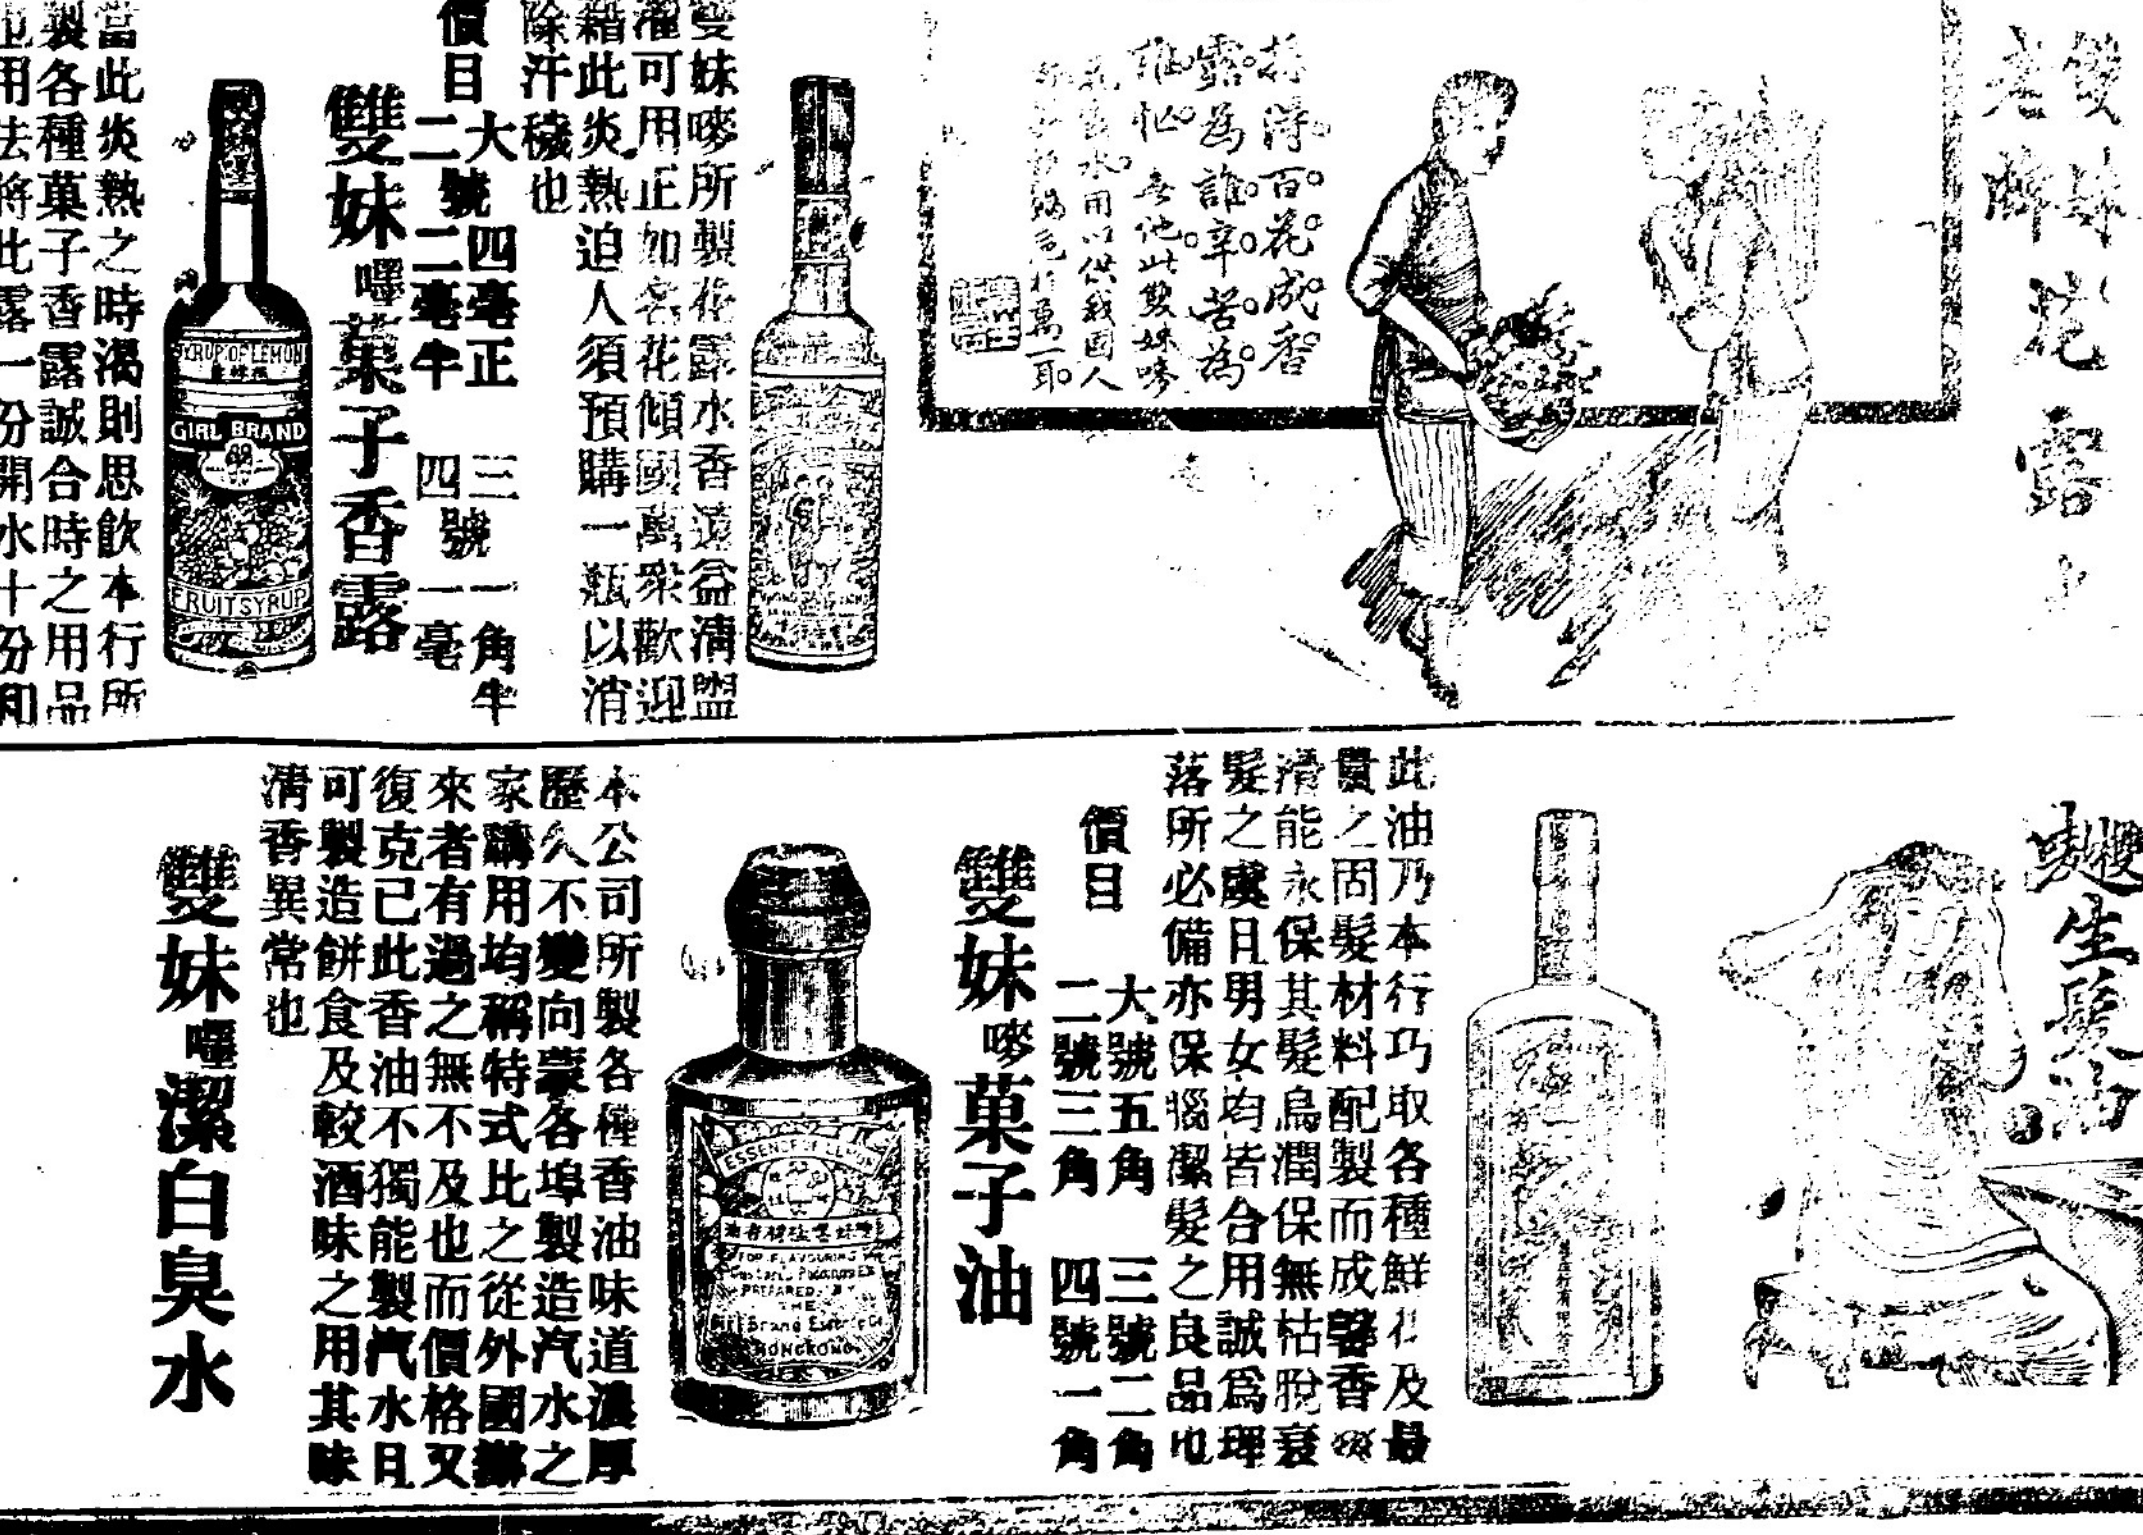 雙妹
老牌
花露水
採得百花成香
露為誰辛苦為
誰忙 無他此雙妹嘜
花露水用以供我國人
雙妹嘜所製花露水香遠益清盥
濯可用正如名花傾國萬衆歡迎
藉此炎熱迫人須預購一瓶以消
除汗穢也
價目
大號四毫正 三號一角半
二號二毫半 四號一毫
雙妹嚜菓子香露
SYRUP OF LEMON
GIRL BRAND
FRUIT SYRUP
當此炎熱之時渴則思飲本行所
製各種菓子香露誠合時之用品
也用法將此露一份開水十份和
雙妹嘜
生髮油
此油乃本行巧取各種鮮花及最
貴之固髮材料配製而成馨香
滑能永保其髮烏潤保無枯脫衰
髮之虞且男女均皆合用誠爲理
落所必備亦保腦潔髮之良品也
價目
大號五角 三號二角
二號三角 四號一角
雙妹嘜菓子油
ESSENCE OF LEMON
FOR FLAVOURING
Custard Puddings Etc
PREPARED BY
THE
Girl Brand Essence Co
HONGKONG
本公司所製各種香油味道濃厚
歷久不變向蒙各埠製造汽水之
家購用均稱特式比之從外國辦
來者有過之無不及也而價格又
復克已此香油不獨能製汽水且
可製造餅食及較酒味之用其味
清香異常也
雙妹嚜潔白臭水